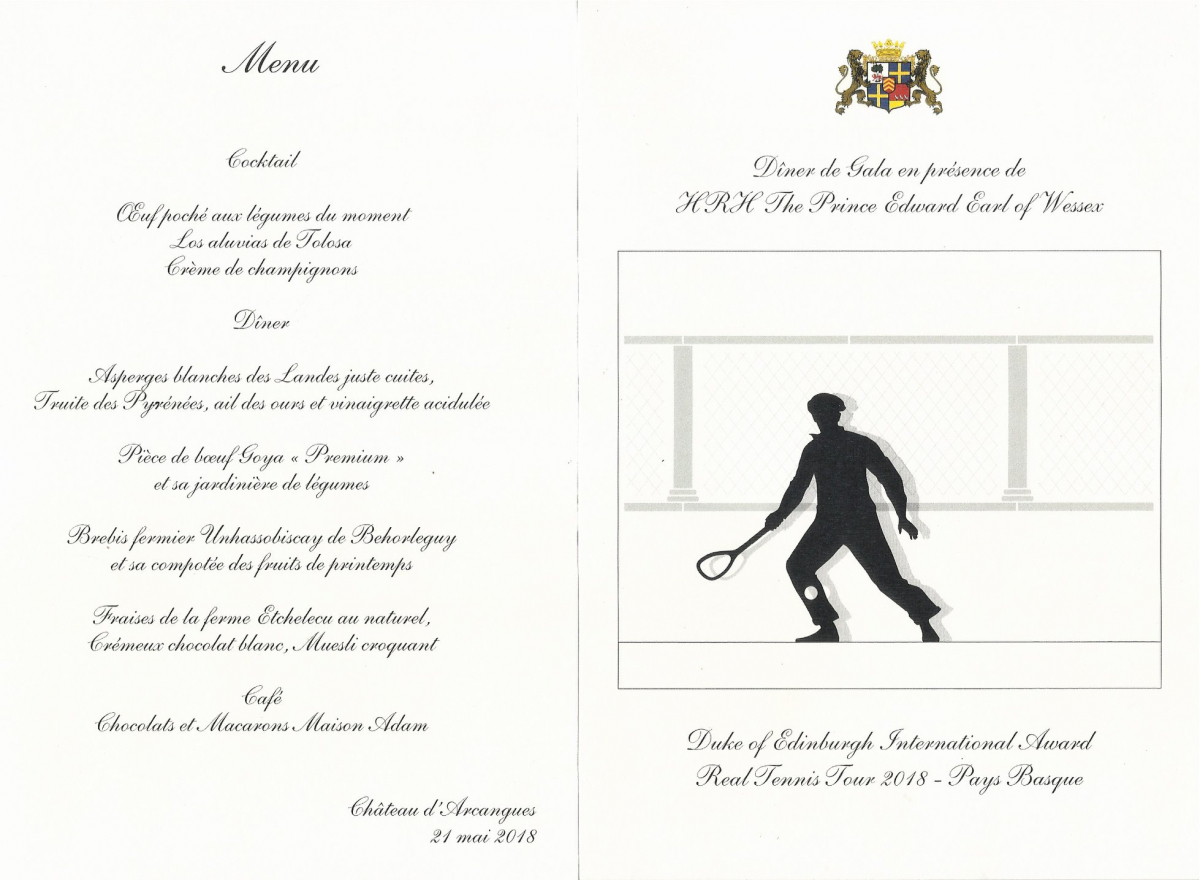 Menu
Cocktail
Œuf poché aux légumes du moment
Los aluvias de Tolosa
Crème de champignons
Dîner
Asperges blanches des Landes juste cuites,
Truite des Pyrénées, ail des ours et vinaigrette acidulée
Pièce de bœuf Goya « Premium »
et sa jardinière de légumes
Brebis fermier Unhassobiscay de Behorleguy
et sa compotée des fruits de printemps
Fraises de la ferme Etchelecu au naturel,
Crémeux chocolat blanc, Muesli croquant
Café
Chocolats et Macarons Maison Adam
Château d'Arcangues
21 mai 2018
Dîner de Gala en présence de
HRH The Prince Edward Earl of Wessex
Duke of Edinburgh International Award
Real Tennis Tour 2018 - Pays Basque